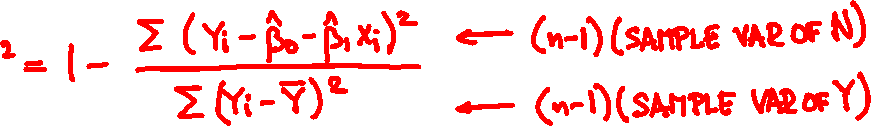 ² = 1 - Σ (Yi - β̂₀ - β̂₁ xi)² / Σ (Yi - Ȳ)²
← (n-1) (SAMPLE VAR OF N̂)
← (n-1) (SAMPLE VAR OF Y)